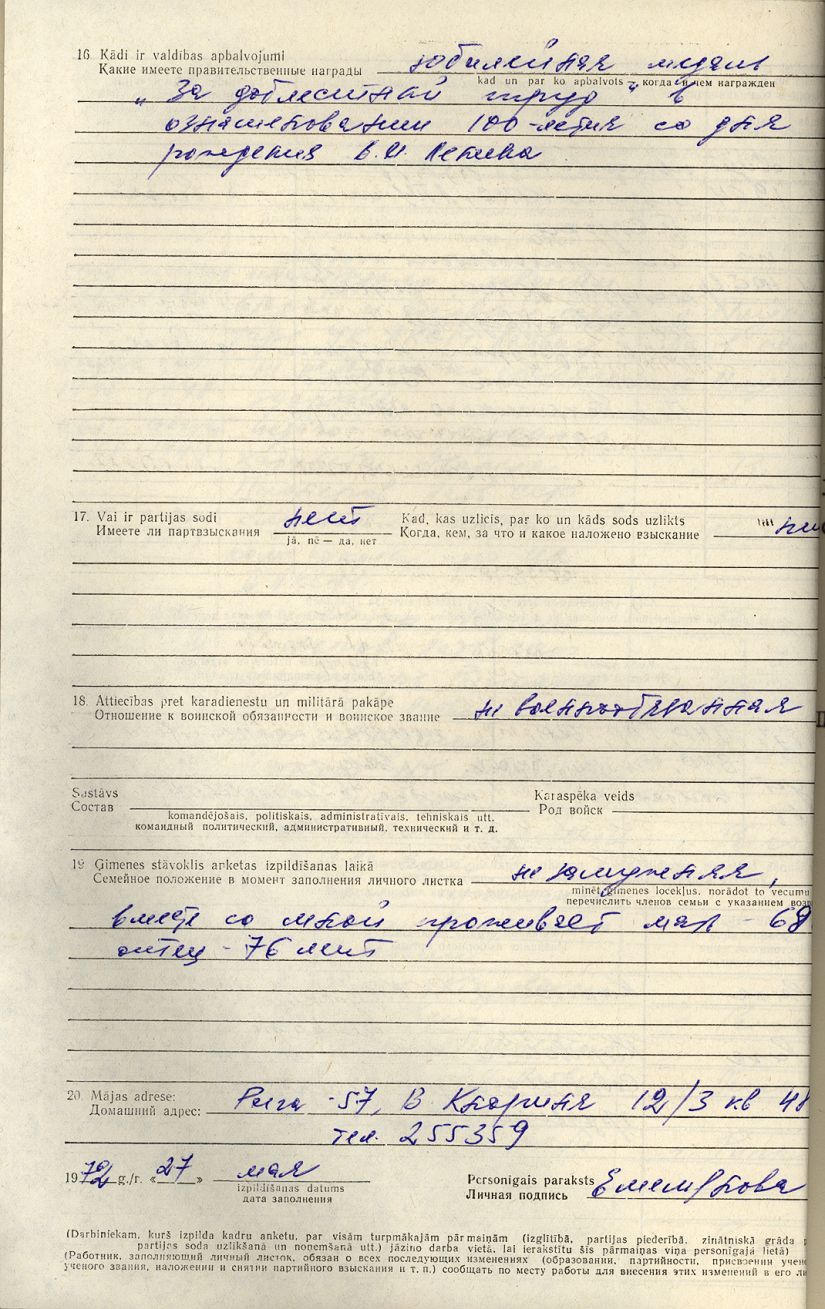 16. Kādi ir valdības apbalvojumi юбилейная медаль
Какие имеете правительственные награды
kad un par ko apbalvots — когда и чем награжден
„За доблестный труд" в
ознаменовании 100-летия со дня
рождения В.И. Ленина
17. Vai ir partijas sodi нет Kad, kas uzlicis, par ko un kāds sods uzlikts
Имеете ли партвзыскания Когда, кем, за что и какое наложено взыскание
jā, nē — да, нет
18. Attiecības pret karadienestu un militārā pakāpe не военнообязанная
Отношение к воинской обязанности и воинское звание
Sastāvs Karaspēka veids
Состав Род войск
komandējošais, politiskais, administratīvais, tehniskais utt.
командный политический, административный, технический и т. д.
19 Ģimenes stāvoklis anketas izpildīšanas laikā не замужняя,
Семейное положение в момент заполнения личного листка
minēt ģimenes locekļus, norādot to vecumu
перечислить членов семьи с указанием воз
вместе со мной проживает мать - 68
отец - 76 лет
20. Mājas adrese: Рига - 57, В. Кнориня 12/3 кв 48
Домашний адрес:
тел. 255359
1972 g./г. «27» мая Personīgais paraksts
izpildīšanas datums Личная подпись
дата заполнения
(Darbiniekam, kurš izpilda kadru anketu, par visām turpmākajām pārmaiņām (izglītībā, partijas piederībā, zinātniskā grāda p
partijas soda uzlikšanā un noņemšanā utt.) jāziņo darba vietā, lai ierakstītu šīs pārmaiņas viņa personīgajā lietā)
(Работник, заполняющий личный листок, обязан о всех последующих изменениях (образовании, партийности, присвоении учен
ученого звания, наложении и снятии партийного взыскания и т. п.) сообщать по месту работы для внесения этих изменений в его ли